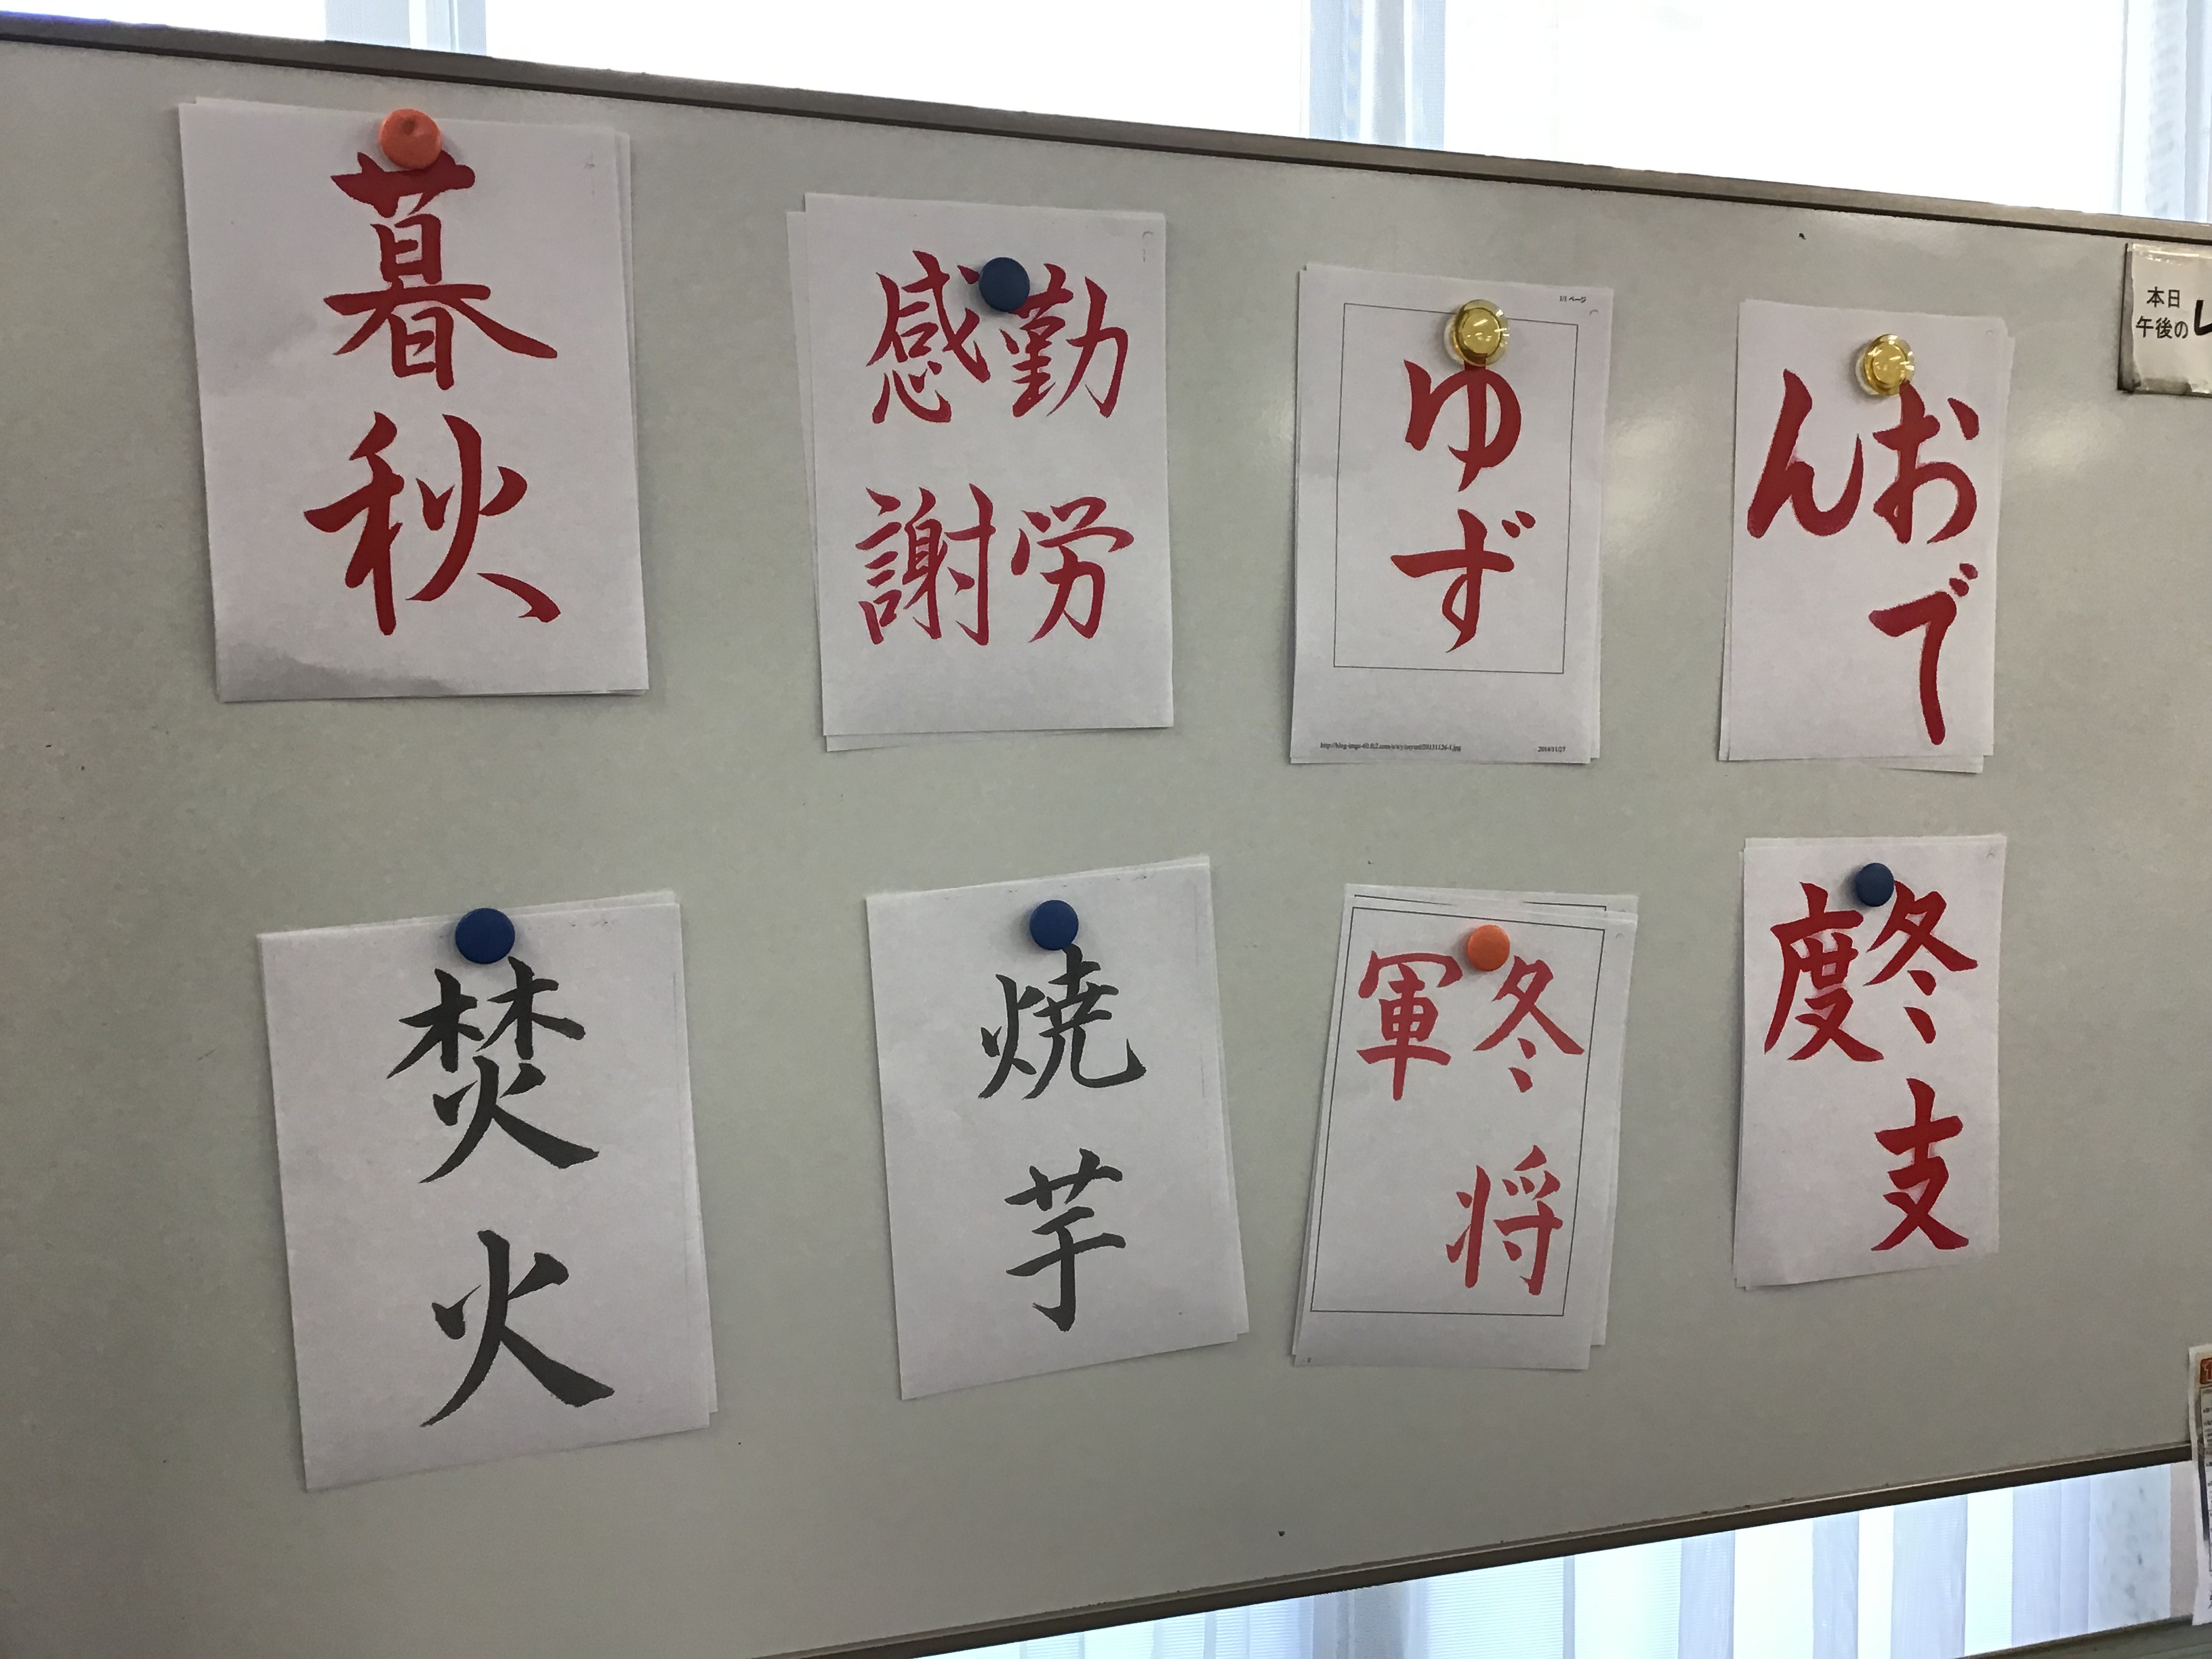 暮秋
勤労
感謝
1/1 ページ
ゆず
2014/11/27
おで
ん
本日
午後の
焚火
焼芋
冬将
軍
冬支
度